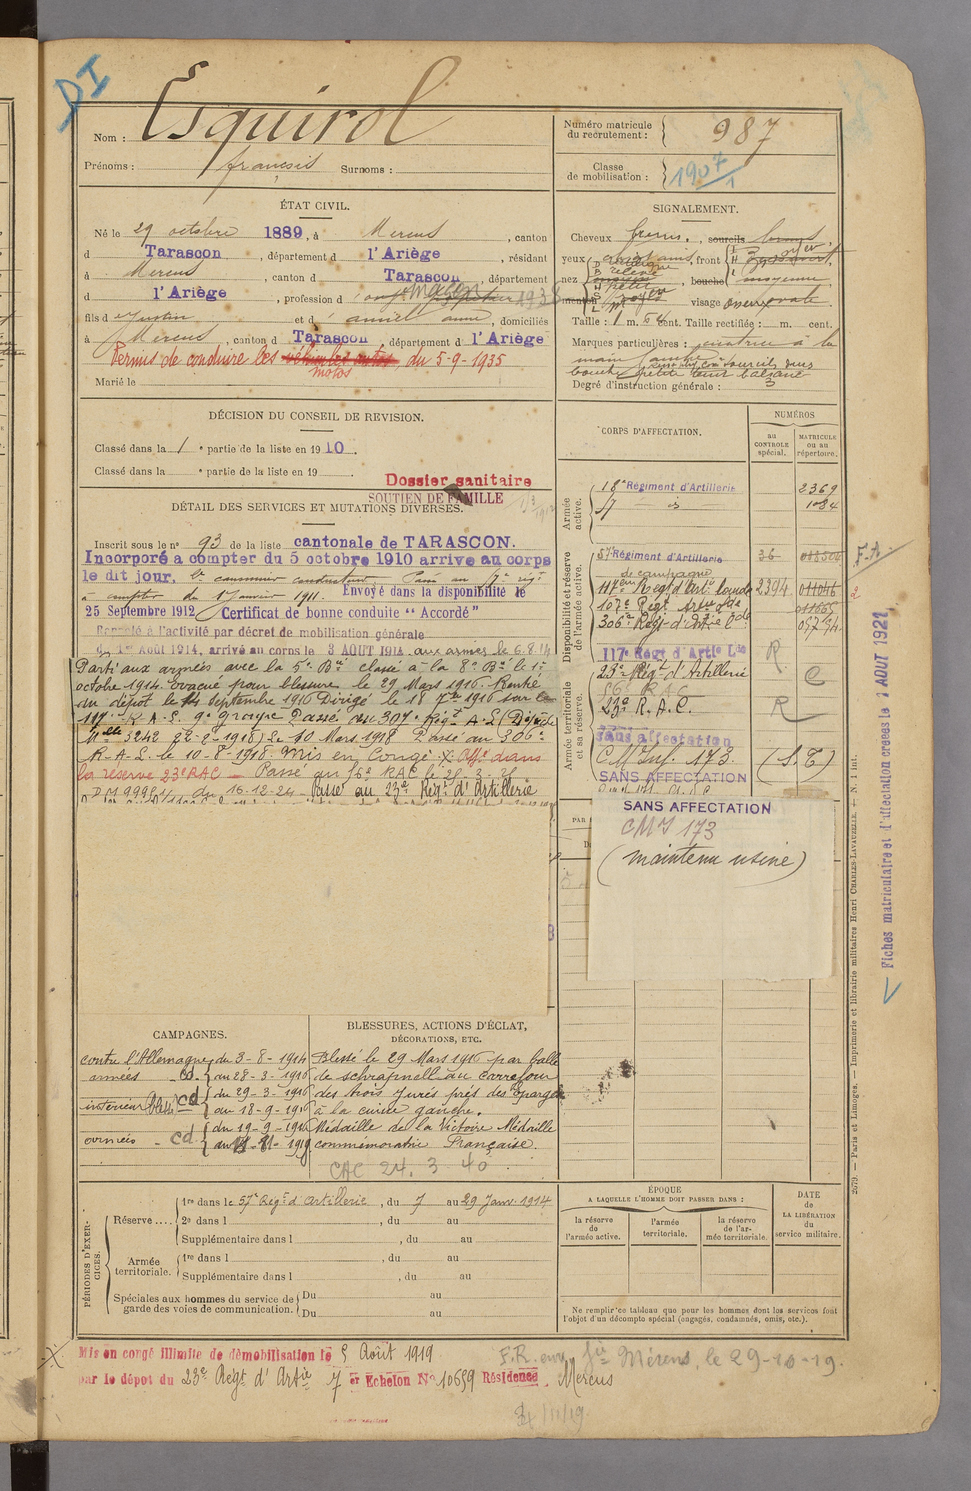 DI
Nom : Esquirol
Prénoms : françois Surnoms :
Numéro matricule du recrutement : 987
Classe de mobilisation : 1907/1
ÉTAT CIVIL.
Né le 29 octobre 1889, à Mercus, canton
d Tarascon, département d l'Ariège, résidant
à Mercus, canton d Tarascon, département
d l'Ariège, profession d maçon 1938
fils d Justin et d anne, domiciliés
à Mercus, canton d Tarascon département d l'Ariège
Permis de conduire les motos du 5-9-1935
Marié le
SIGNALEMENT.
Cheveux bruns, sourcils bruns
yeux front
nez bouche moyenne
menton visage ovale
Taille : 1 m. cent. Taille rectifiée : m. cent.
Marques particulières : cicatrice à la
main gauche
Degré d'instruction générale : 3
DÉCISION DU CONSEIL DE REVISION.
Classé dans la 1e partie de la liste en 1910
Classé dans la e partie de la liste en 19
Dossier sanitaire
SOUTIEN DE FAMILLE
DÉTAIL DES SERVICES ET MUTATIONS DIVERSES.
Inscrit sous le n° 93 de la liste cantonale de TARASCON.
Incorporé a compter du 5 octobre 1910 arrive au corps
le dit jour, 2e canonnier conducteur Passé au régt
à compter du 1 janvier 1911. Envoyé dans la disponibilité le
25 Septembre 1912 Certificat de bonne conduite "Accordé"
Rappelé à l'activité par décret de mobilisation générale
du 1er Août 1914, arrivé au corps le 3 AOUT 1914 aux armées le 6.8.14
Parti aux armées avec la 5e Bie classé à la 8e Bie le 1er
octobre 1914. Evacué pour blessure le 29 Mars 1916. Rentré
au dépôt le septembre 1916 Dirigé le 18 7bre 1916 sur le
117e R.A.L. 9e groupe Passé au 307e Régt A.L (Dépêche
Mlle 3242 22-2-1918) Le 10 Mars 1918 Passé au 306e
R.A.L. le 10-8-1918 Mis en Congé X Affé dans
la réserve 23e RAC — Passé au 56e RAC le
DM 9996 du 16-12-24 Passé au 23e Régt d'Artillerie
CORPS D'AFFECTATION.
NUMÉROS
au CONTROLE spécial.
MATRICULE ou au répertoire.
Armée active.
18e Régiment d'Artillerie 2369
1084
Disponibilité et réserve de l'armée active.
57e Régiment d'Artillerie 36
de campagne
117eme Régt d'Artie lourde 2394
107e Régt Artie Lde
306e Régt d'Artie Lde
117e Régt d'Artie Lde R
Armée territoriale et sa réserve.
23e Régt d'Artillerie C
56e RAC
23e R.A.C. R
Sans affectation
C M Inf. 173. (S.T)
SANS AFFECTATION
SANS AFFECTATION
CMI 173
(maintenu usine)
F.A.
2
Fiches matriculaire et d'affectation créées le 1 AOUT 1921
2079. — Paris et Limoges. — Imprimerie et librairie militaires Henri CHARLES-LAVAUZELLE. — N. 1 Int.
CAMPAGNES.
contre l'Allemagne du 3-8-1914
armées cd au 28-3-1916
intérieur blessé cd du 29-3-1916
au 18-9-1916
armées cd du 19-9-1916
au 11-11-1919
BLESSURES, ACTIONS D'ÉCLAT,
DÉCORATIONS, ETC.
Blessé le 29 Mars 1916 par balle
de schrapnell au carrefour
des trois jurés près des Eparges
à la cuisse gauche.
Médaille de la Victoire Médaille
commémorative Française.
CAC 24. 3-40
PÉRIODES D'EXERCICES.
Réserve....
1re dans le 57e Régt d'artillerie, du 7 au 29 Janv. 1914
2e dans l , du au
Supplémentaire dans l , du au
Armée territoriale.
1re dans l , du au
Supplémentaire dans l , du au
Spéciales aux hommes du service de garde des voies de communication.
Du au
Du au
ÉPOQUE
A LAQUELLE L'HOMME DOIT PASSER DANS :
la réserve de l'armée active.
l'armée territoriale.
la réserve de l'armée territoriale.
DATE de LA LIBÉRATION du service militaire.
Ne remplir ce tableau que pour les hommes dont les services font
l'objet d'un décompte spécial (engagés, condamnés, omis, etc.).
X Mis en congé illimité de démobilisation le 5 Août 1919
par le dépôt du 23e Régt d'Artie 7 er Echelon N° 10659 Résidence Mercus
F.R. env. Mérens, le 29-10-19.